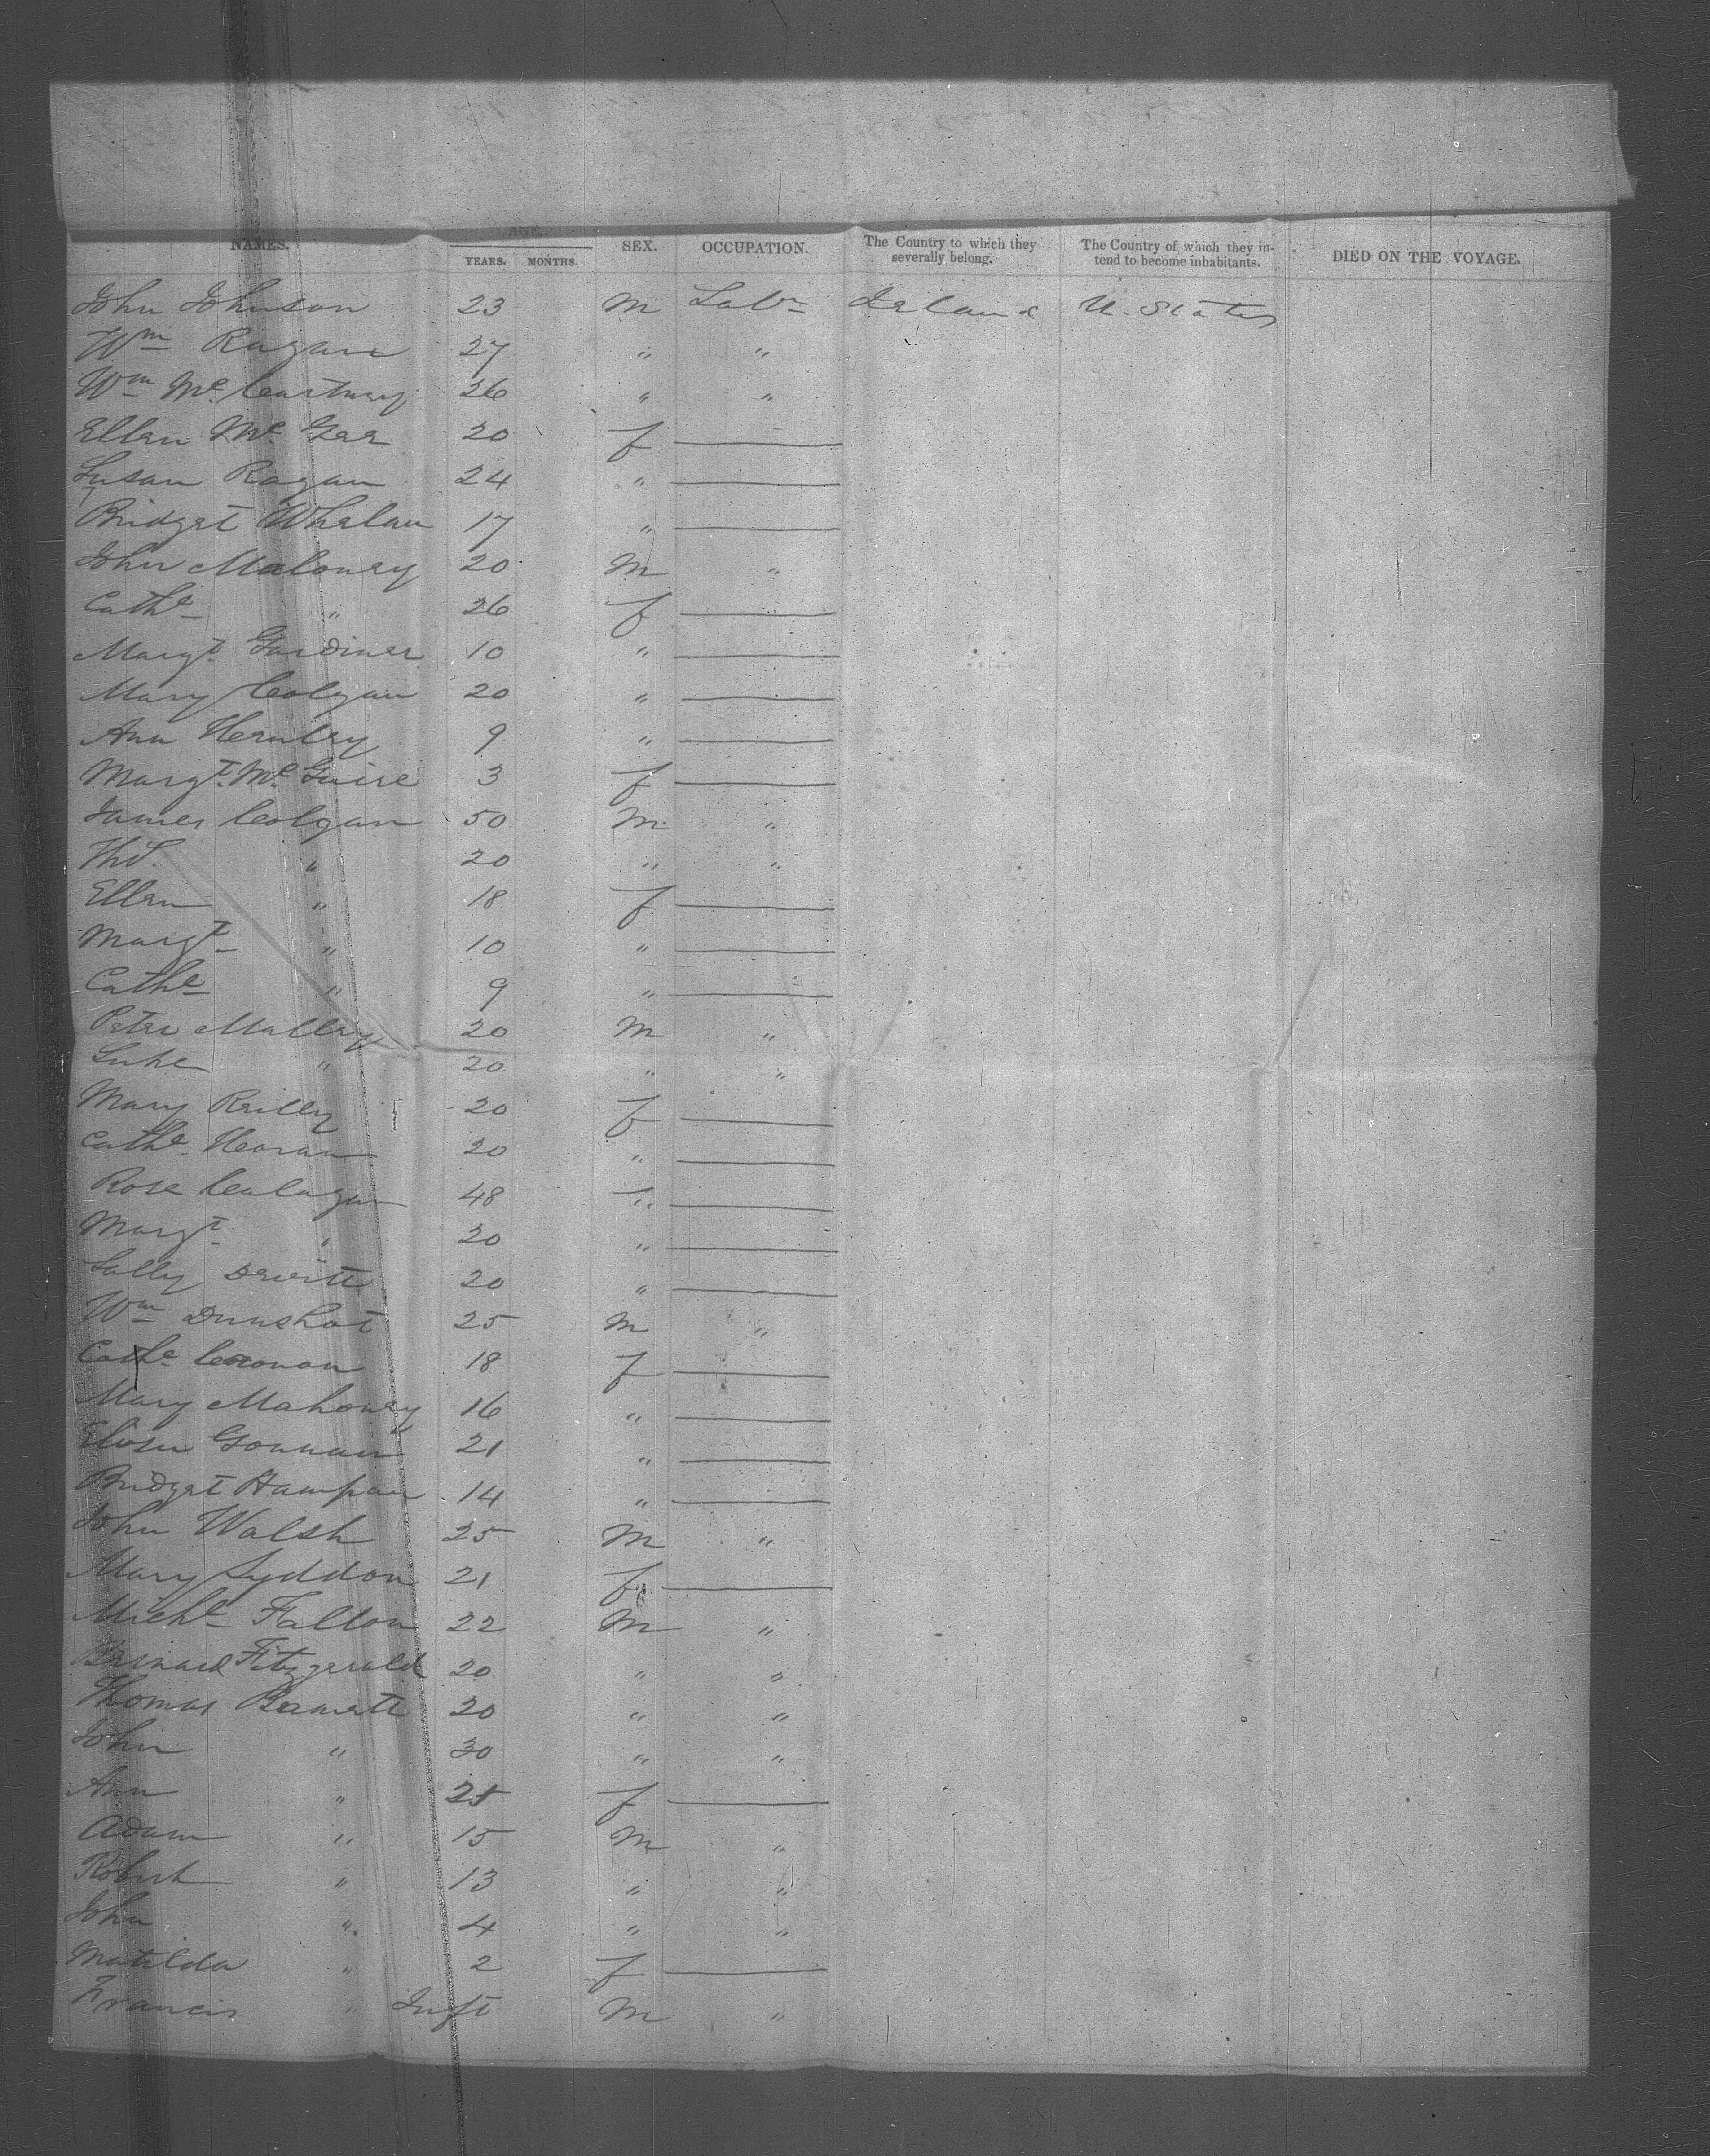 NAMES. AGE. SEX. OCCUPATION. The Country to which they severally belong. The Country of which they intend to become inhabitants. DIED ON THE VOYAGE.
YEARS. MONTHS
John Johnson 23 M Labr Ireland U. States
Wm Ragan 27 " "
Wm Mc. Cartney 26 " "
Ellen Mc Gee 20 f
Susan Ragan 24 "
Bridget Whelan 17 "
John Maloney 20 M "
Cathe " 26 f
Margt. Gardiner 10 "
Mary Colgan 20 "
Ann Henley 9 "
Margt. Mc Guire 3 f
James Colgan 50 M "
Ths. " 20 " "
Ellen " 18 f
Margt " 10 "
Cathe " 9 "
Peter Malley 20 M "
Luke " 20 " "
Mary Reilly 20 f
Cathe. Horan 20 "
Rose Calagan 48 "
Margt. " 20 "
Sally 20 "
Wm Dunshot 25 M "
Cathe 18 f
Mary Mahoney 16 "
Gorman 21 "
Bridget 14 "
John Walsh 25 M "
Mary Lyddon 21 f
Michl Fallon 22 M "
Bernard Fitzgerald 20 " "
Thomas 20 " "
John " 30 " "
Ann " 25 f
Adam " 15 M "
Robert " 13 " "
John " 4 " "
Matilda " 2 f
Francis " Inft M "